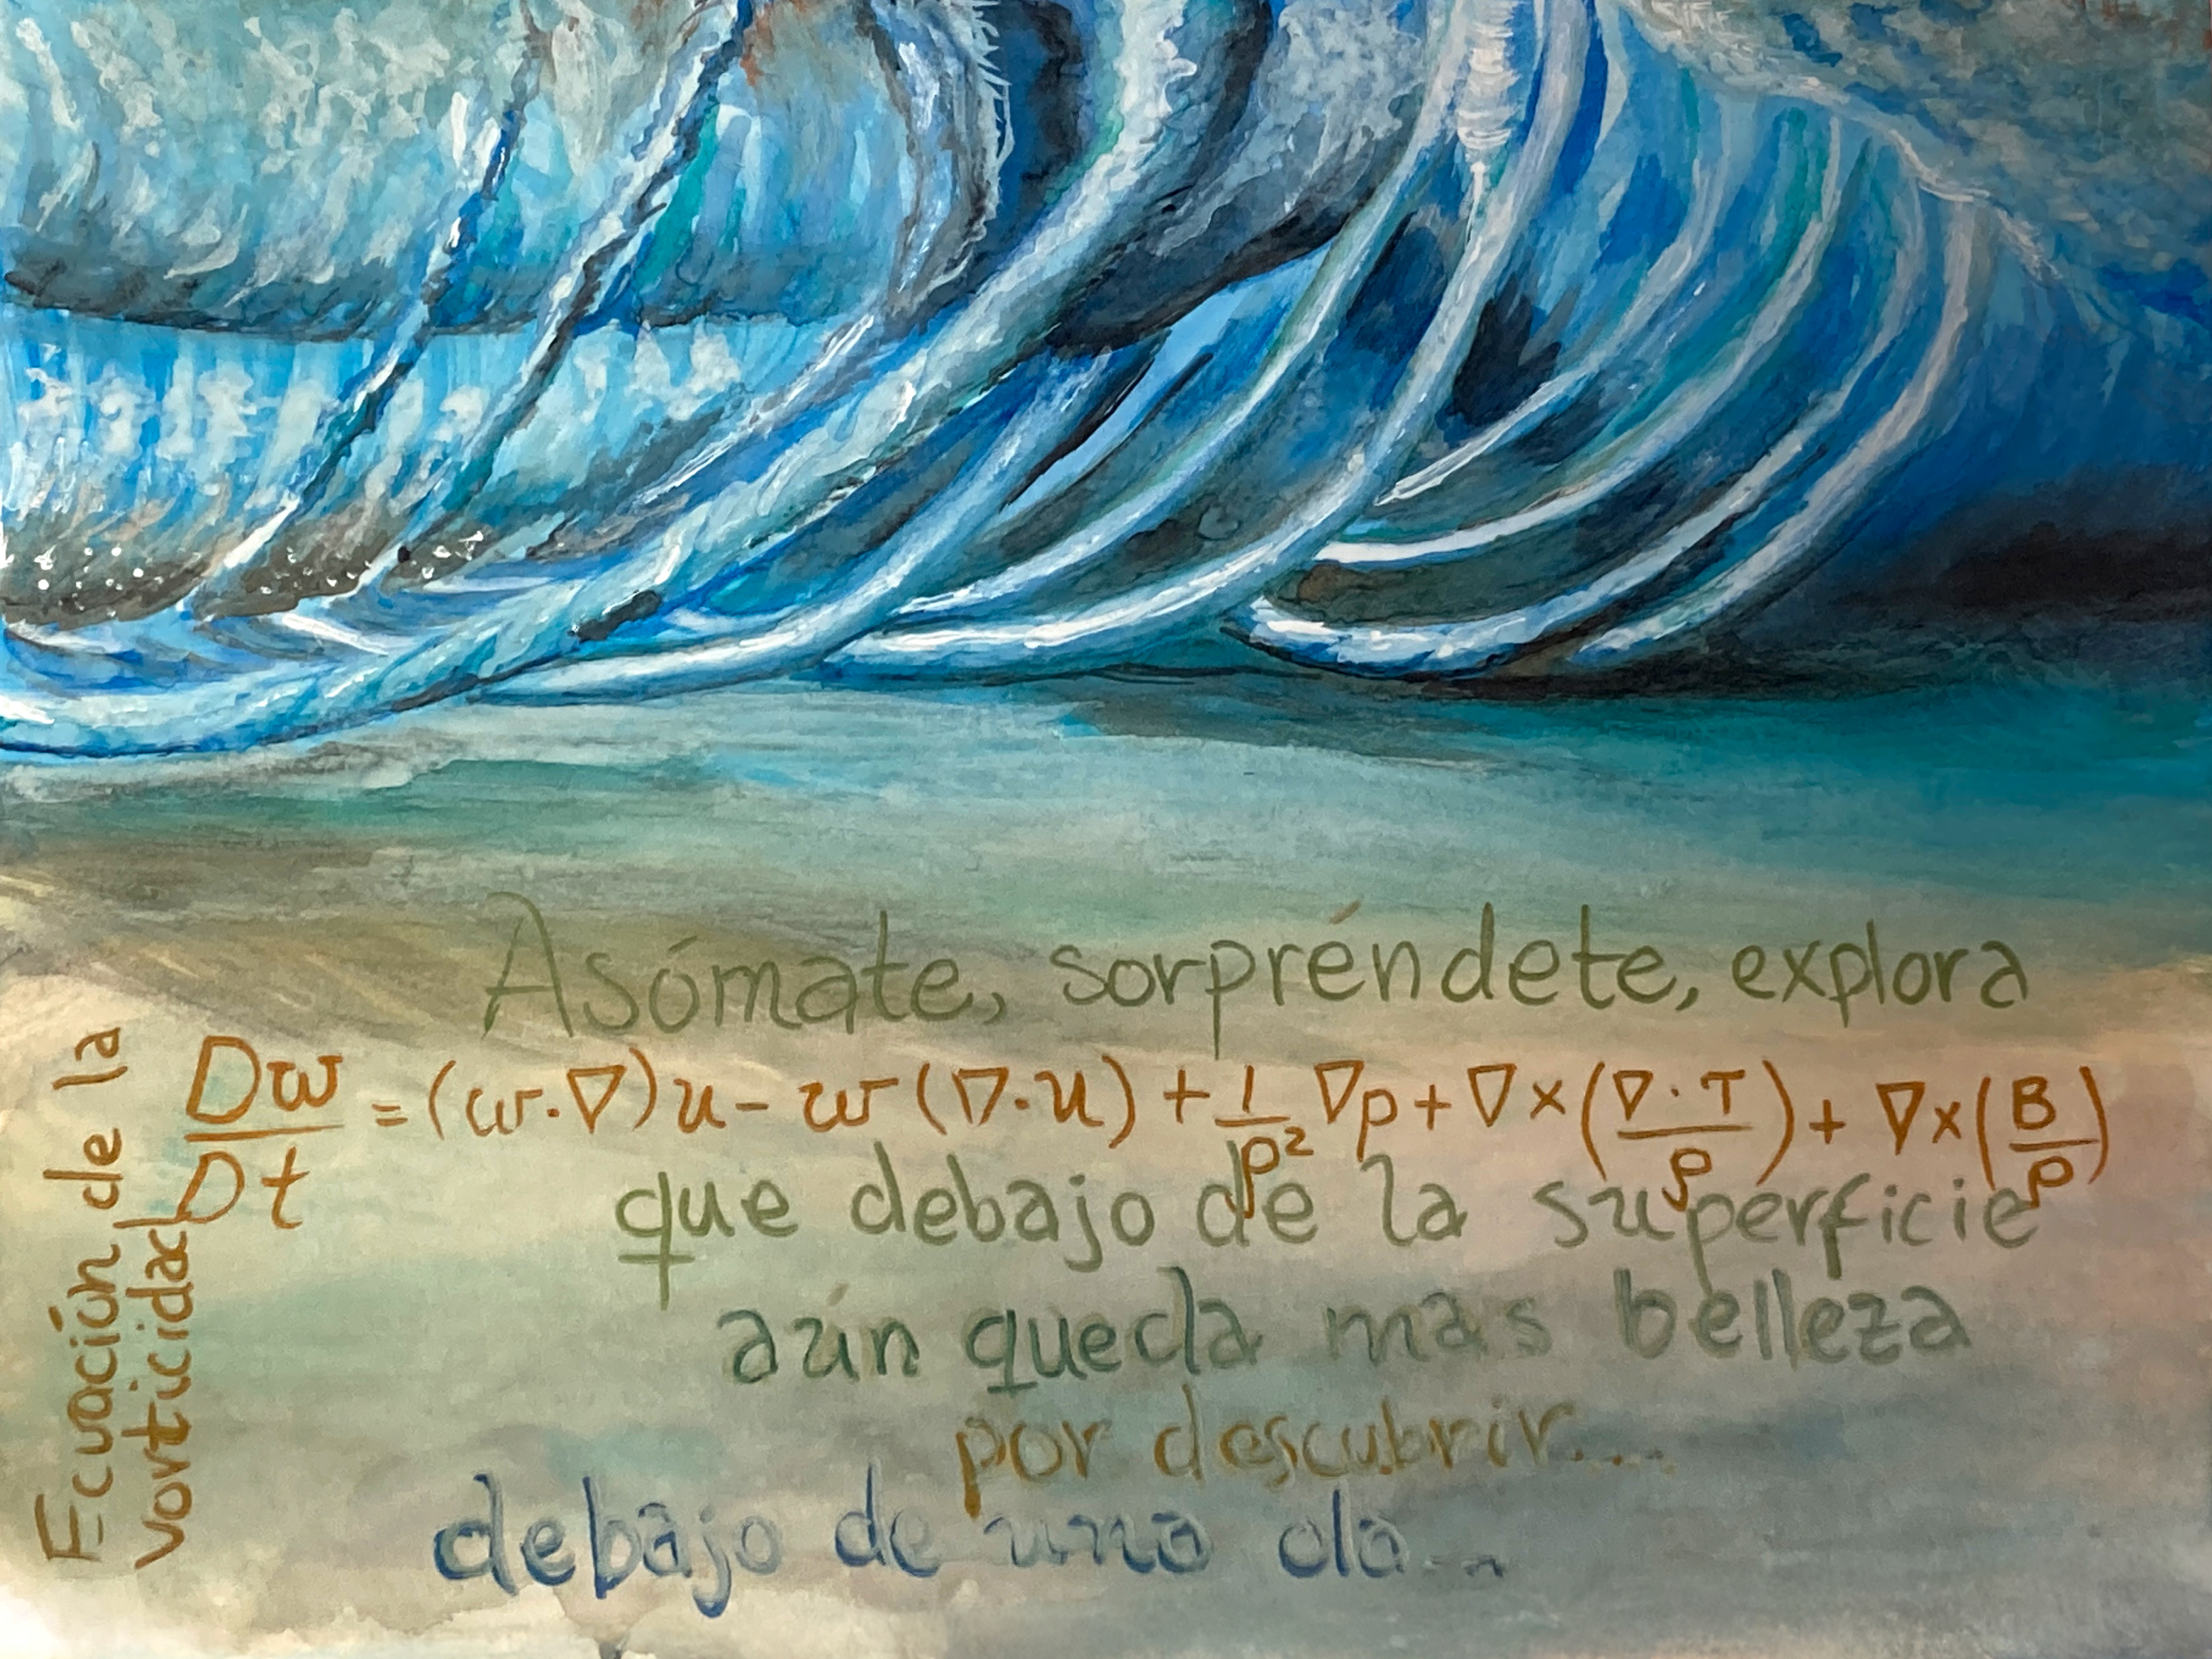 Asómate, sorpréndete, explora
Ecuación de la
vorticidad
Dw/Dt = (w·∇)u - w(∇·u) + 1/ρ² ∇p + ∇×(∇·T/ρ) + ∇×(B/ρ)
que debajo de la superficie
aún queda mas belleza
por descubrir....
debajo de una ola...